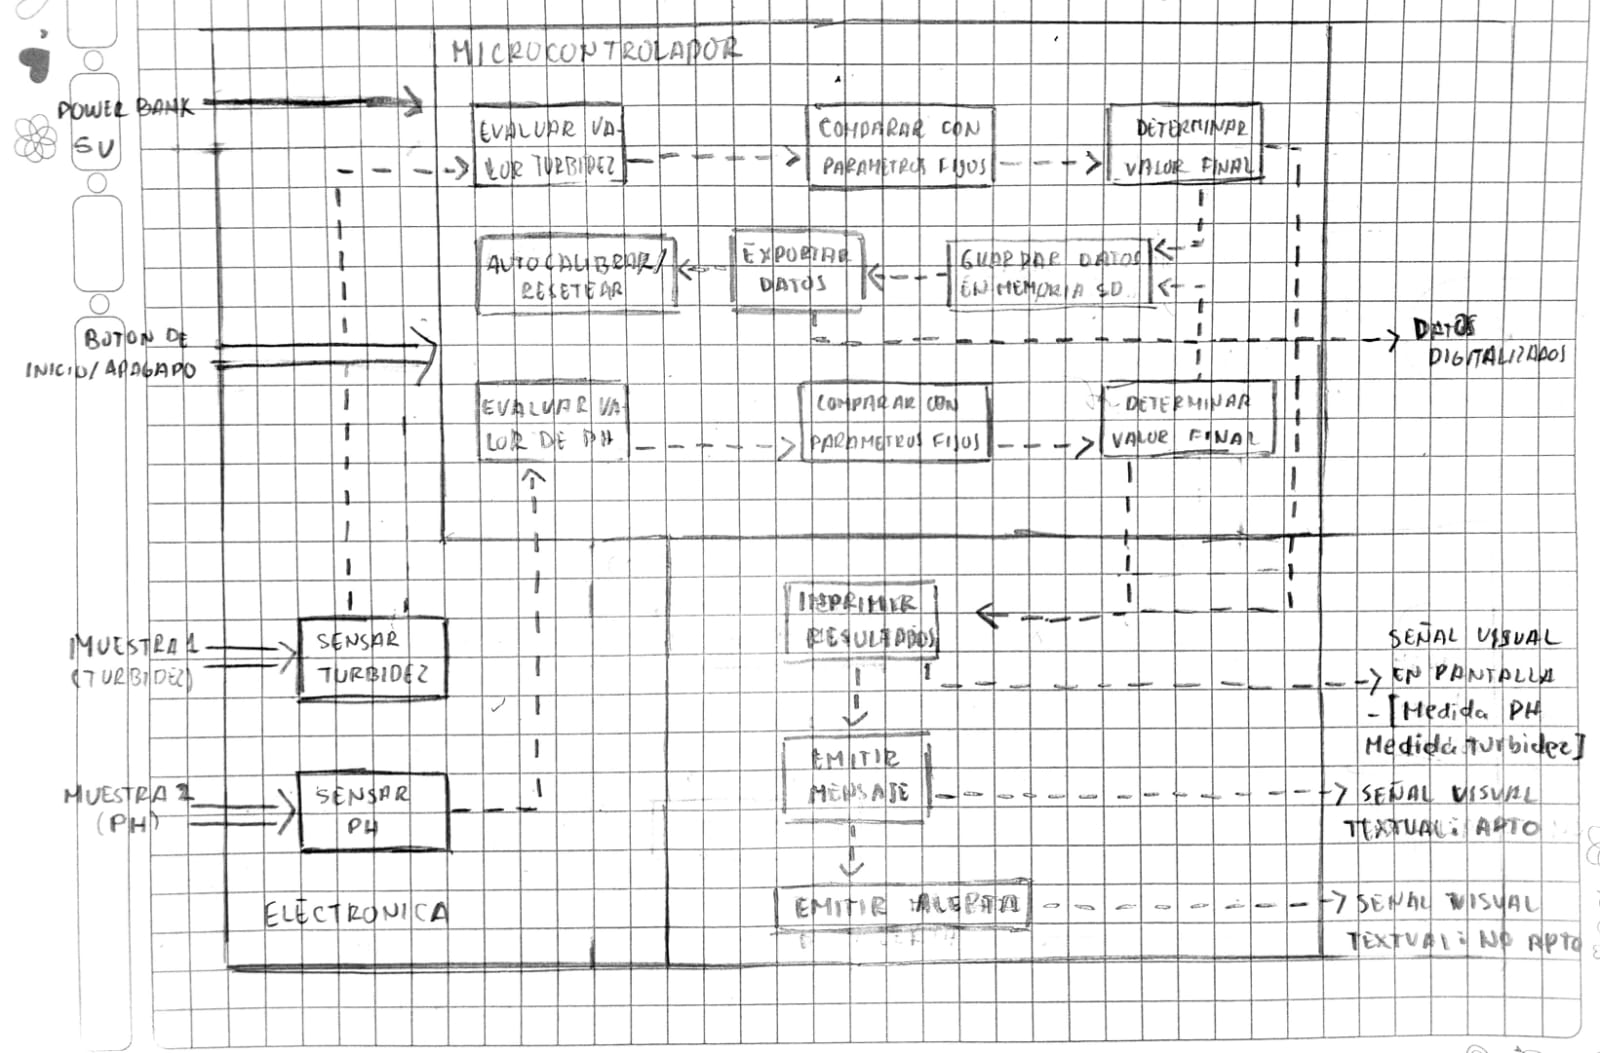 MICROCONTROLADOR
POWER BANK
5V
EVALUAR VA-
LOR TURBIDEZ
COMPARAR CON
PARAMETROS FIJOS
DETERMINAR
VALOR FINAL
AUTOCALIBRAR/
RESETEAR
EXPORTAR
DATOS
GUARDAR DATOS
EN MEMORIA SD
BOTON DE
INICIO/APAGADO
DATOS
DIGITALIZADOS
EVALUAR VA-
LOR DE PH
COMPARAR CON
PARAMETROS FIJOS
DETERMINAR
VALOR FINAL
MUESTRA 1
(TURBIDEZ)
SENSAR
TURBIDEZ
IMPRIMIR
RESULTADOS
SEÑAL VISUAL
EN PANTALLA
-[Medida PH
Medida Turbidez]
MUESTRA 2
(PH)
SENSAR
PH
EMITIR
MENSAJE
SEÑAL VISUAL
TEXTUAL: APTO
ELECTRONICA
EMITIR ALERTA
SEÑAL VISUAL
TEXTUAL: NO APTO